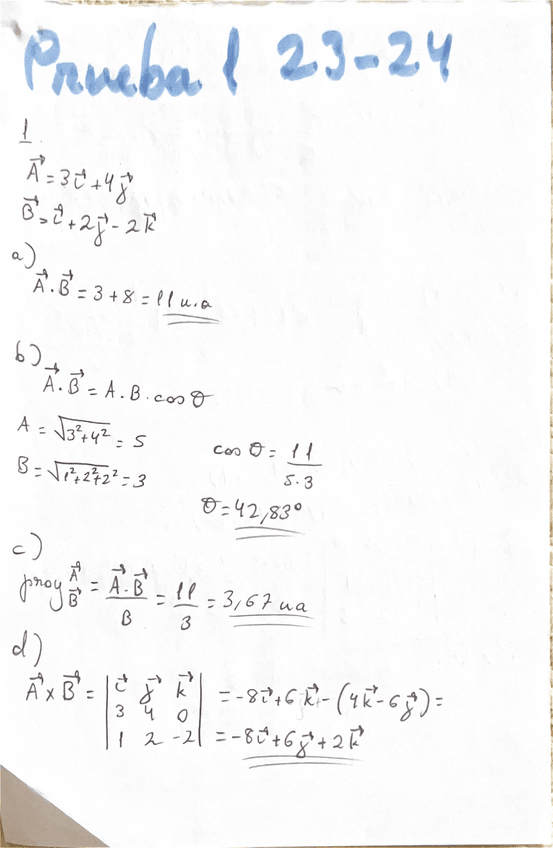 Prueba 1 23-24
1.
A⃗ = 3i⃗ + 4j⃗
B⃗ = i⃗ + 2j⃗ - 2k⃗
a)
A⃗ . B⃗ = 3 + 8 = 11 u.a
b)
A⃗ . B⃗ = A . B . cos θ
A = √(3²+4²) = 5
B = √(1²+2²+2²) = 3
cos θ = 11/5.3
θ = 42,83º
c)
proy A⃗ B⃗ = A⃗.B⃗/B = 11/3 = 3,67 ua
d)
A⃗ x B⃗ = | i⃗ j⃗ k⃗ | = -8i⃗ + 6k⃗ - (4k⃗ - 6j⃗) =
| 3 4 0 |
| 1 2 -2 | = -8i⃗ + 6j⃗ + 2k⃗